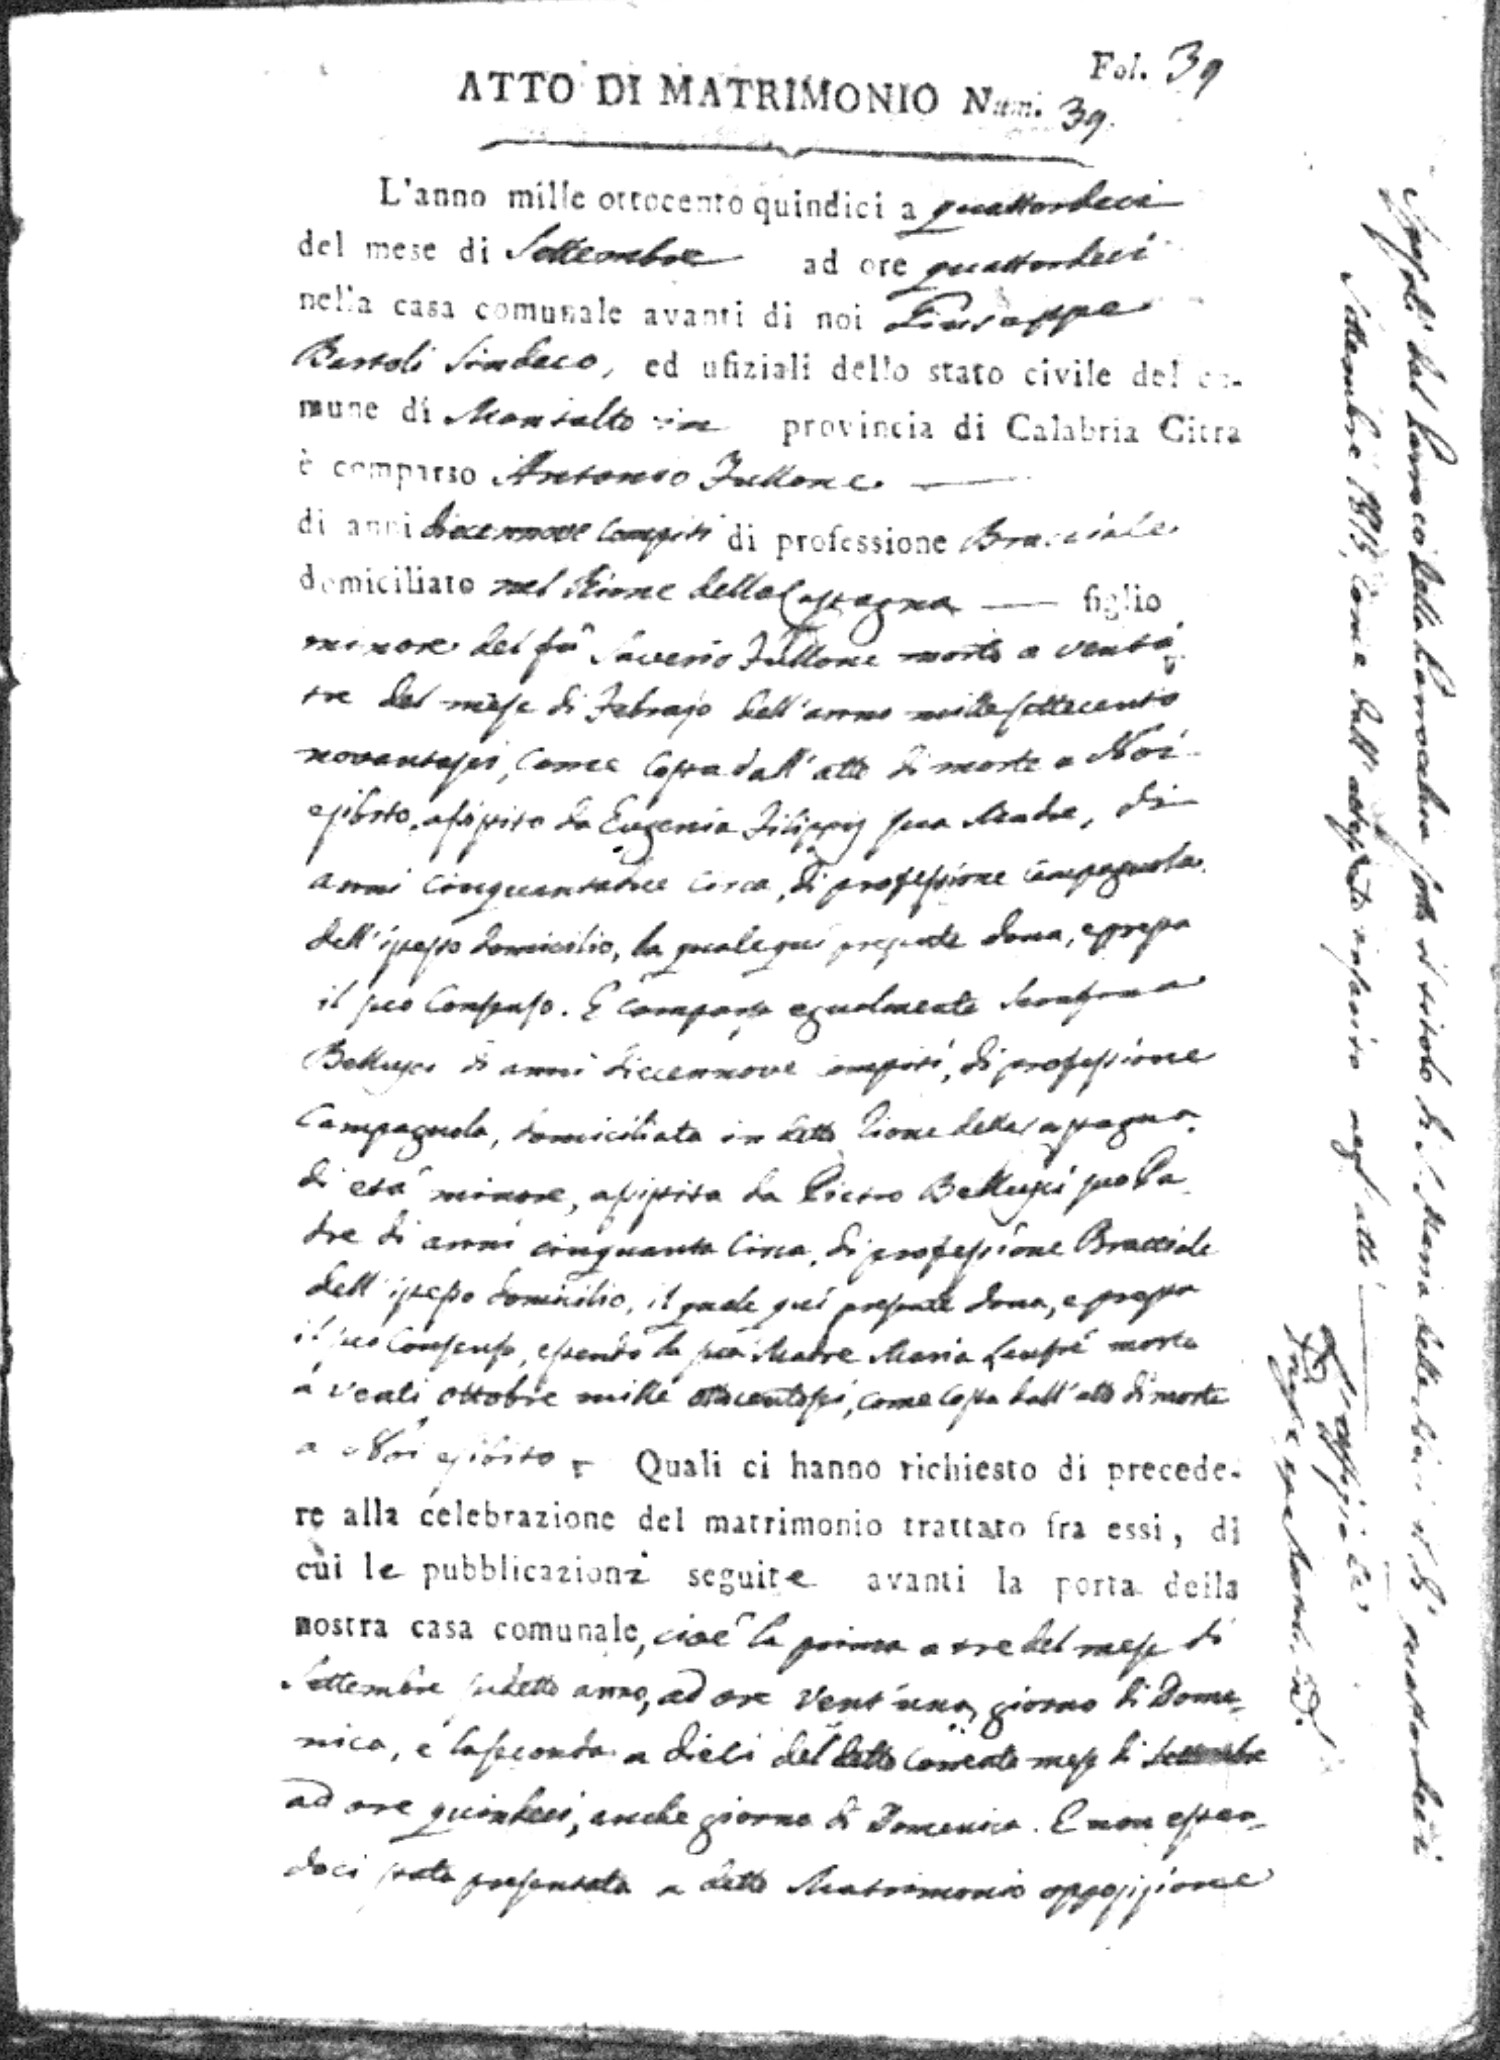 Fol. 39
ATTO DI MATRIMONIO Num. 39.
L'anno mille ottocento quindici a quattordeci
del mese di Settembre ad ore quattordeci
nella casa comunale avanti di noi Giuseppe
Bartoli Sindaco, ed ufiziali dello stato civile del co-
mune di Montalto in provincia di Calabria Citra
è comparso Antonio Fullone
di anni diecennove compiti di professione Bracciale
domiciliato nel Rione della figlio
minore del fù Saverio Fullone morto a venti
tre del mese di Febrajo dell'anno mille settecento
novantasei, come costa dall'atto di morte a Noi
esibito, assistito da Eugenia Filippis sua Madre, di
anni cinquantadue circa, di professione Campagnola
dell'istesso domicilio, la quale qui presente dona, e presta
il suo Consenso. E comparsa egualmente Serafina
Bellusci di anni diecennove compiti, di professione
Campagnola, domiciliata in detto Rione della
di età minore, assistita da Pietro Bellusci suo Pa
dre di anni cinquanta circa, di professione Bracciale
dell'istesso domicilio, il quale qui presente dona, e presta
il suo Consenso, essendo la sua Madre Maria morta
a venti ottobre mille ottocentosei, come costa dall'atto di morte
a Noi esibito. Quali ci hanno richiesto di precede-
re alla celebrazione del matrimonio trattato fra essi, di
cui le pubblicazioni seguite avanti la porta della
nostra casa comunale, cioè la prima a tre del mese di
Settembre sudetto anno, ad ore vent'una, giorno di Dome-
nica, e la seconda a dieci del detto corrente mese di Settembre
ad ore quindeci, anche giorno di Domenica. E non essen-
doci stata presentata a detto Matrimonio opposizione
Sposati dal Parroco della Parrocchia sotto il titolo di S. Maria della il dì quattordeci
Settembre 1815, come dall'attestato inserito negl'atti